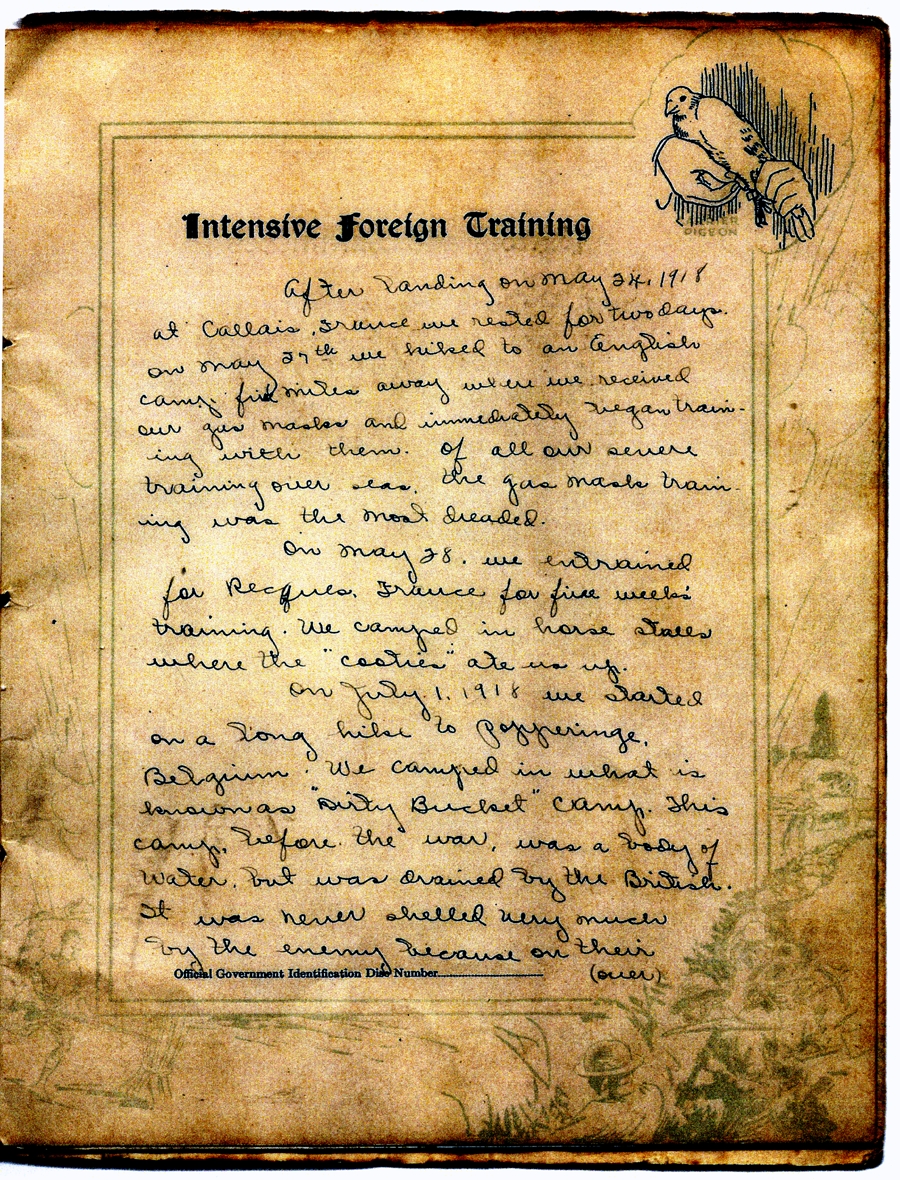 CARRIER
PIGEON
Intensive Foreign Training
After landing on May 24, 1918
at Callais, France we rested for two days.
On May 27th we hiked to an English
camp five miles away where we received
our gas masks and immediately began train-
ing with them. Of all our severe
training over seas, the gas mask train-
ing was the most dreaded.
On May 28, we entrained
for Recques, France for five weeks'
training. We camped in horse stalls
where the "cooties" ate us up.
On July 1, 1918 we started
on a long hike to Popperinge,
Belgium. We camped in what is
known as "Dirty Bucket" Camp. This
camp, before the war, was a body of
water, but was drained by the British.
It was never shelled very much
by the enemy because on their
Official Government Identification Disc Number
(over)